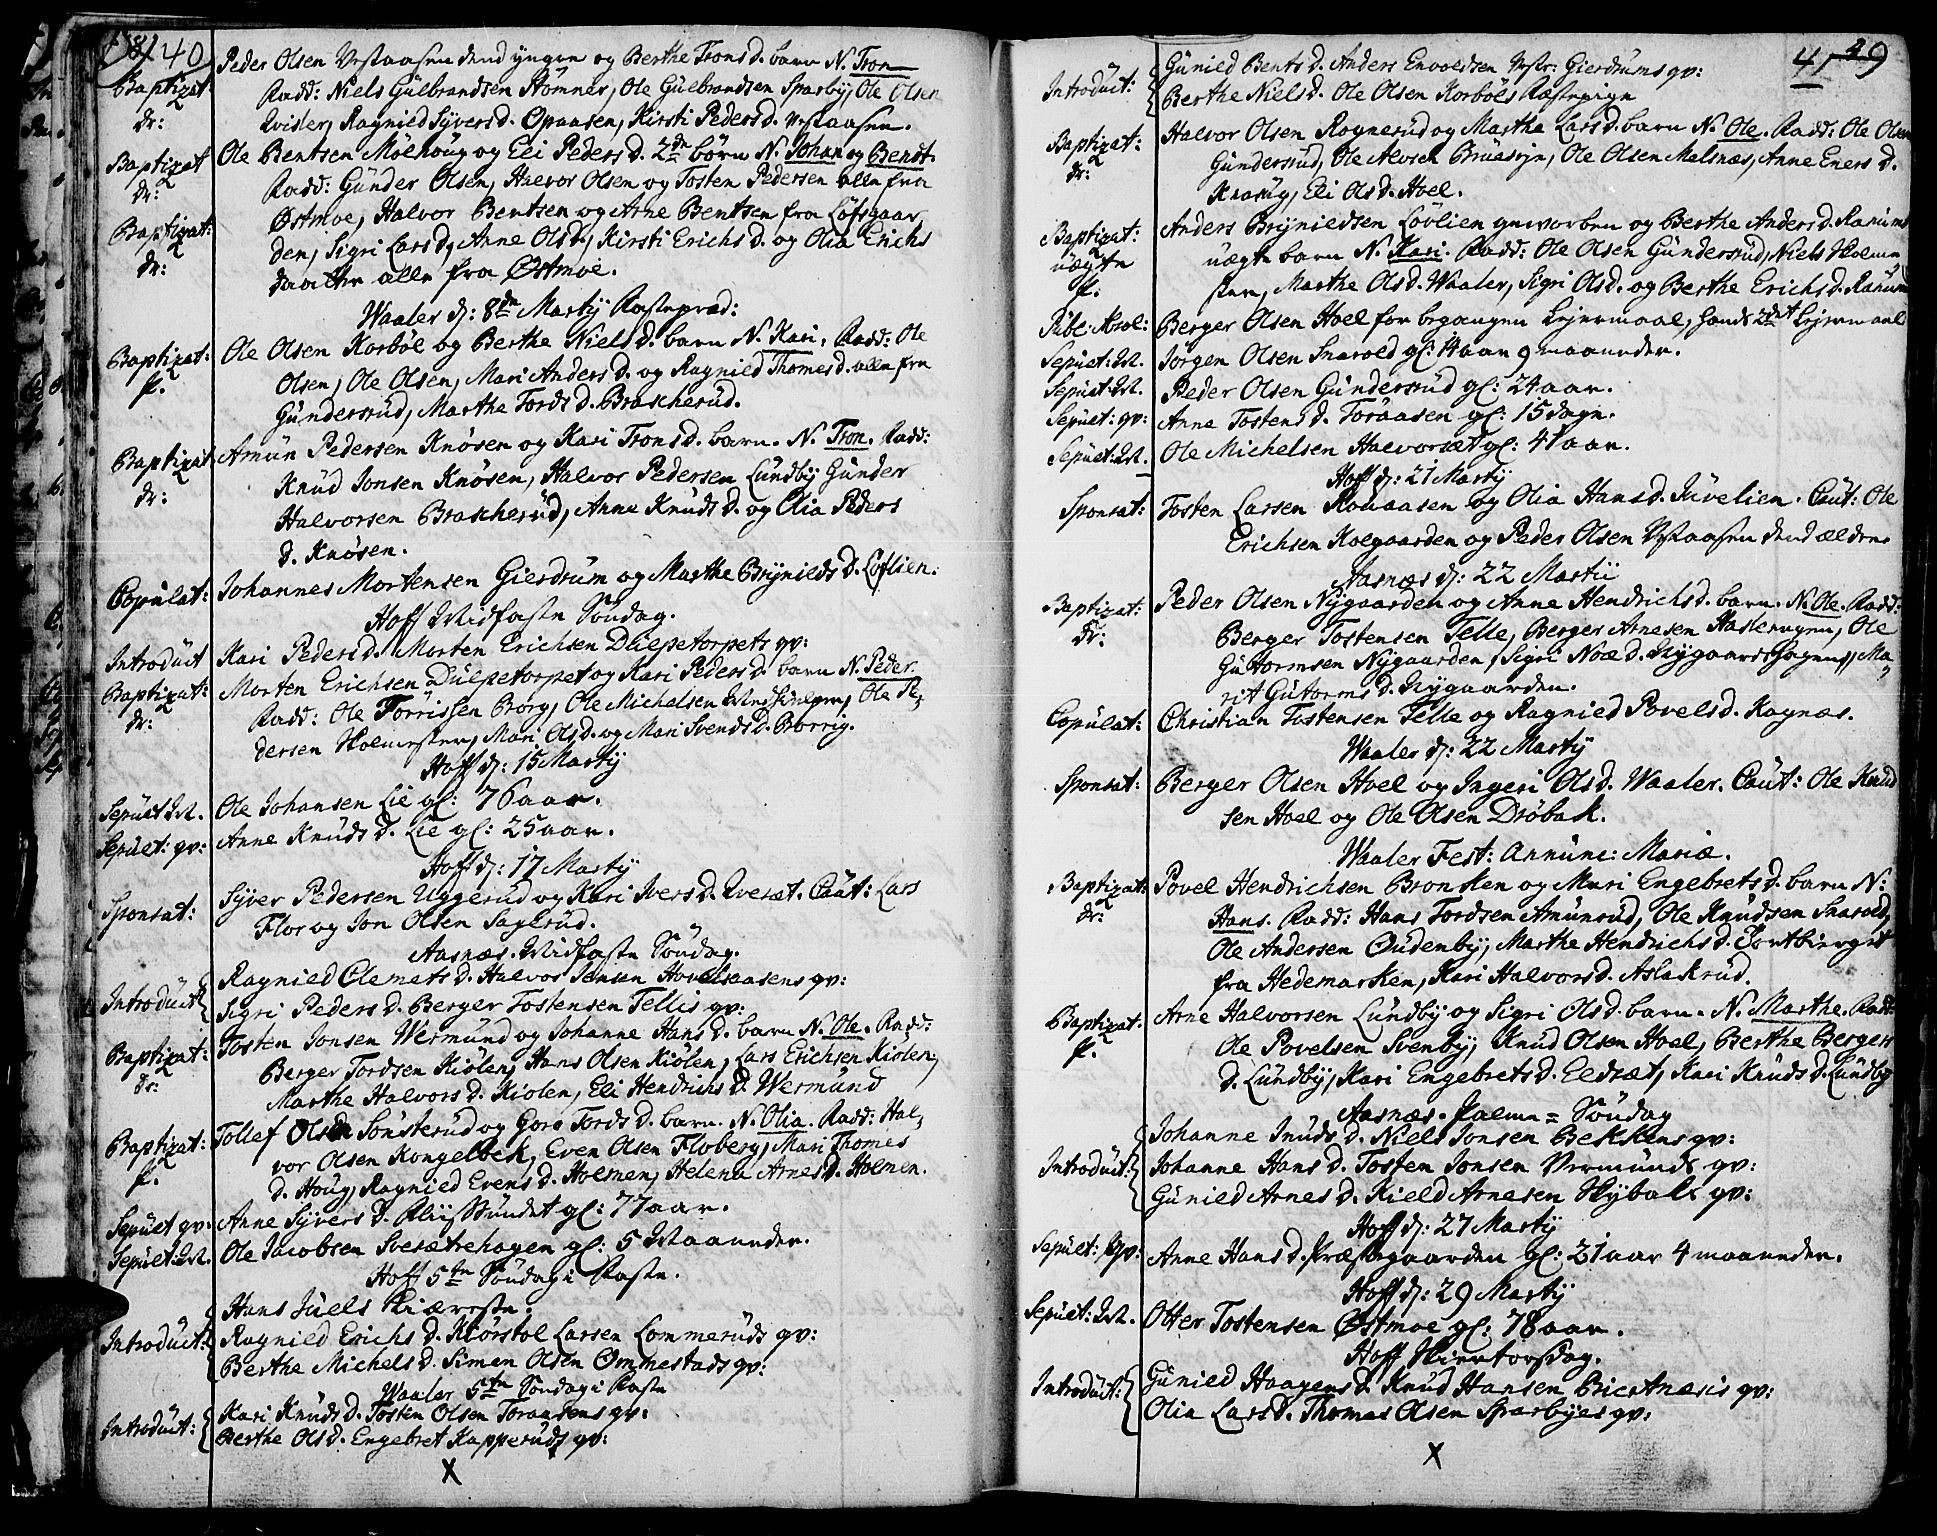 40
Peder Olsen Vestaasen dend yngre og Berthe Trons d. barn N. Tron
Baptizat: Fadd: Niels Gulbrandsen Stomner, Ole Gulbrandsen Sparby, Ole Olsen
dr: Qvisler, Ragnild Syvers d. Opaasen, Kirsti Peders d. Vestaasen.
Baptizat Ole Bentsen Mølhoug og Eli Peders d. 2de børn N. Johan og Bendt
dr: Fadd: Gunder Olsen, Halvor Olsen og Tosten Pedersen alle fra
Baptizat: Østmoe, Halvor Bentsen og Arne Bentsen fra Lofsgaar
dr: den, Sigri Lars d, Anne Ols d, Kirsti Erichs d. og Olia Erichs
daatter alle fra Østmoe.
Waaler d: 8de Martij Fastepræd:
Baptizat: Ole Olsen Korbøl og Berthe Niels d. barn N. Kari, Fadd: Ole
p. Olsen, Ole Olsen, Mari Anders d. og Ragnild Thomes d. alle fra
Gundersrud, Marthe Tords d. Brascherud.
Baptizat Amun Pedersen Knøsen og Kari Trons d. barn. N. Tron. Fadd:
dr: Knud Jonsen Knøsen, Halvor Pedersen Lundby Gunder
Halvorsen Brascherud, Anne Knuds d. og Olia Peders
d. Knøsen.
Copulat: Johannes Mortensen Gierdrum og Marthe Brynilds d. Løflien.
Hoff Midfaste Søndag.
Introduct Kari Peders d. Morten Erichsen Dulpetorpets qv:
Baptizat: Morten Erichsen Dulpetorpet og Kari Peders d. barn N. Peder
dr: Fadd: Ole Torrissen Børg, Ole Michelsen, Ole Pe,
dersen Skolmester, Mari Ols d. og Mari Svends d. Borrig.
Hoff d: 15 Martij
Sepult M. Ole Johansen Lie gl: 76 aar.
Sepult: qv: Anne Knuds d. Lie gl: 25 aar.
Hoff d: 17 Martij
Sponsat: Syver Pedersen Uggerud og Kari Ivers d. Qveset. Caut: Lars
Flor og Jon Olsen Saglrud.
Aasnæs. Midfaste Søndag.
Ragnild Clemets d. Halvor Jensen Hovelsaasens qv:
Introduct Sigri Peders d. Berger Tostensen Tellis qv:
Baptizat: Tosten Jonsen Wermund og Johanne Hans d. barn N. Ole. Fadd:
dr: Berger Tordsen Kiølen, Hans Olsen Kiølen, Lars Erichsen Kiølen,
Marthe Halvors d. Kiølen, Eli Hendrichs d. Wermund
Baptizat: Tollef Olsen Sønsterud og Goro Tords d. barn. N. Olia. Fadd: Hal,
p. vor Olsen Kongelbek, Even Olsen Floberg, Mari Thomes
d. Houg, Ragnild Evens d. Holmen, Helena Arnes d. Holmen.
Sepult qv: Anne Syvers d. Flisstundet gl: 77 aar.
Sepult: M. Ole Jacobsen Sveretrehagen gl: 5 Maaneder.
Hoff 5te Søndag i Faste.
Hans Juels Kiæreste.
Introduct: Ragnild Erichs d. Kiørstol Larsen Lommeruds qv:
Berthe Michels d. Simen Olsen Ommestads qv:
Waaler 5te Søndag i Faste
Introduct: Kari Knuds d. Tosten Olsen Toraasens qv:
Berthe Ols d. Engebret Kapperuds qv:
X
41 29
Introduct: Gunild Bents d. Anders Envoldsen Vestr: Gierdrums qv:
Berthe Niels d. Ole Olsen Korbøls Fæstepige
Baptizat: Halvor Olsen Rognerud og Marthe Lars d. barn N. Ole. Fadd: Ole Olsen
dr: Gundersrud, Ole Alvsen Bruasyn, Ole Olsen Malsnæs, Anne Eners d.
Knoshug, Eli Ols d. Hoel.
Baptizat: Anders Brynildsen Løvlien geworben og Berthe Anders d. Ranums
uægte uægte barn N. Kari. Fadd: Ole Olsen Gundersrud, Niels Skolme
p. ster, Marthe Ols d. Waaler, Sigri Ols d. og Berthe Erichs d. Ranum
Pube: Absol: Berger Olsen Hoel for begangen Lejermaal, hands 2det Lejermaal
Sepult: M. Jørgen Olsen Snarold gl: 14 aar 9 maaneder.
Sepult: M. Peder Olsen Gundersrud gl: 24 aar.
Sepult: qv: Anne Tostens d. Toraasen gl: 15 dage.
Sepult: M. Ole Michelsen Halvorsæt gl: 41 aar.
Hoff d: 21 Martij
Sponsat: Tosten Larsen Rouaasen og Olia Hans d. Juvelien. Caut: Ole
Erichsen Kolgaarden og Peder Olsen Vestaasen dend ældre
Aasnæs d: 22 Martii
Baptizat: Peder Olsen Nygaarden og Anne Hendrichs d. barn. N. Ole. Fadd:
dr: Berger Tostensen Telle, Berger Arnesen Haslerngen, Ole
Gutormsen Nygaarden, Sigri Noæ d. Nygaardshagen, Ma,
rit Gutorms d. Nygaarden.
Copulat: Christian Tostensen Telle og Ragnild Povels d. Kagnæs.
Waaler d: 22 Martij
Sponsat: Berger Olsen Hoel og Ingeri Ols d. Waaler. Caut: Ole Knud
sen Hoel og Ole Olsen Drøbak.
Waaler Fest: Annunc: Mariæ.
Baptizat: Povel Hendrichsen Bronken og Mari Engebrets d. barn N:
dr: Hans. Fadd: Hans Tordsen Amunrud, Ole Knudsen Snarold,
Ole Andersen Oudenby, Marthe Hendrichs d. Tortbierget
fra Hedemarken, Kari Halvors d. Aslakrud.
Baptizat: Arne Halvorsen Lundby og Sigri Ols d. barn. N. Marthe. Fadd:
p. Ole Povelsen Svenby, Knud Olsen Hoel, Berthe Bergers
d. Lundby, Kari Engebrets d. Eldset, Kari Knuds d. Lundby
Aasnæs. Palme = Søndag
Johanne Knuds d. Niels Jonsen Bekkens qv:
Introduct: Johanne Hans d. Tosten Jonsen Vermunds qv:
Gunild Arnes d. Kield Arnesen Skybaks qv:
Hoff d: 27 Martij
Sepult: Qv: Anne Hans d. Præstegaarden gl: 21 aar 4 maaneder.
Hoff d: 29 Martij
Sepult: M. Otter Tostensen Østmoe gl: 78 aar.
Hoff Skiertorsdag.
Introduct: Gunild Haagens d. Knud Hansen Bricstnæsis qv:
Olia Lars d. Thomas Olsen Sparbyes qv:
X